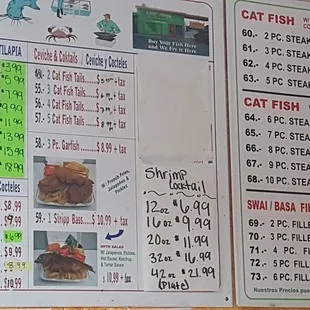 Buy Your Fish Here
and We Fry It Here
TILAPIA
Ceviche & Cocktails / Ceviche y Cocteles
2 Cat Fish Tails
+ tax
55.- 3 Cat Fish Tails
+ tax
56.- 4 Cat Fish Tails
+ tax
57.- 5 Cat Fish Tails
+ tax
58.- 3 Pc. Garfish $8.99 + tax
W/ French Fries,
Jalapeños &
Pickles
59.- 1 Stripp Bass $10.99 + tax
WITH SALAD
W/ Jalapeños, Pickles,
Hot Sauce, Ketchup
& Tartar Sauce
$10.99 + tax
$11.99
13.99
15.99
18.99
Cocteles
$8.99
$9.99
Shrimp
Cocktail
12oz $6.99
16oz $9.99
20oz 11.99
32oz 16.99
42oz $21.99
(Plate)
CAT FISH
60.- 2 PC. STEAK
61.- 3 PC. STEAK
62.- 4 PC. STEAK
63.- 5 PC. STEAK
CAT FISH
64.- 6 PC. STEA
65.- 7 PC. STEA
66.- 8 PC. STEA
67.- 9 PC. STEA
68.- 10 PC. STEA
SWAI / BASA FI
69.- 2 PC. FILLE
70.- 3 PC. FILLE
71.- 4 PC. FI
72.- 5 PC. FILLE
73.- 6 PC. FILLE
Nuestros Precios pue